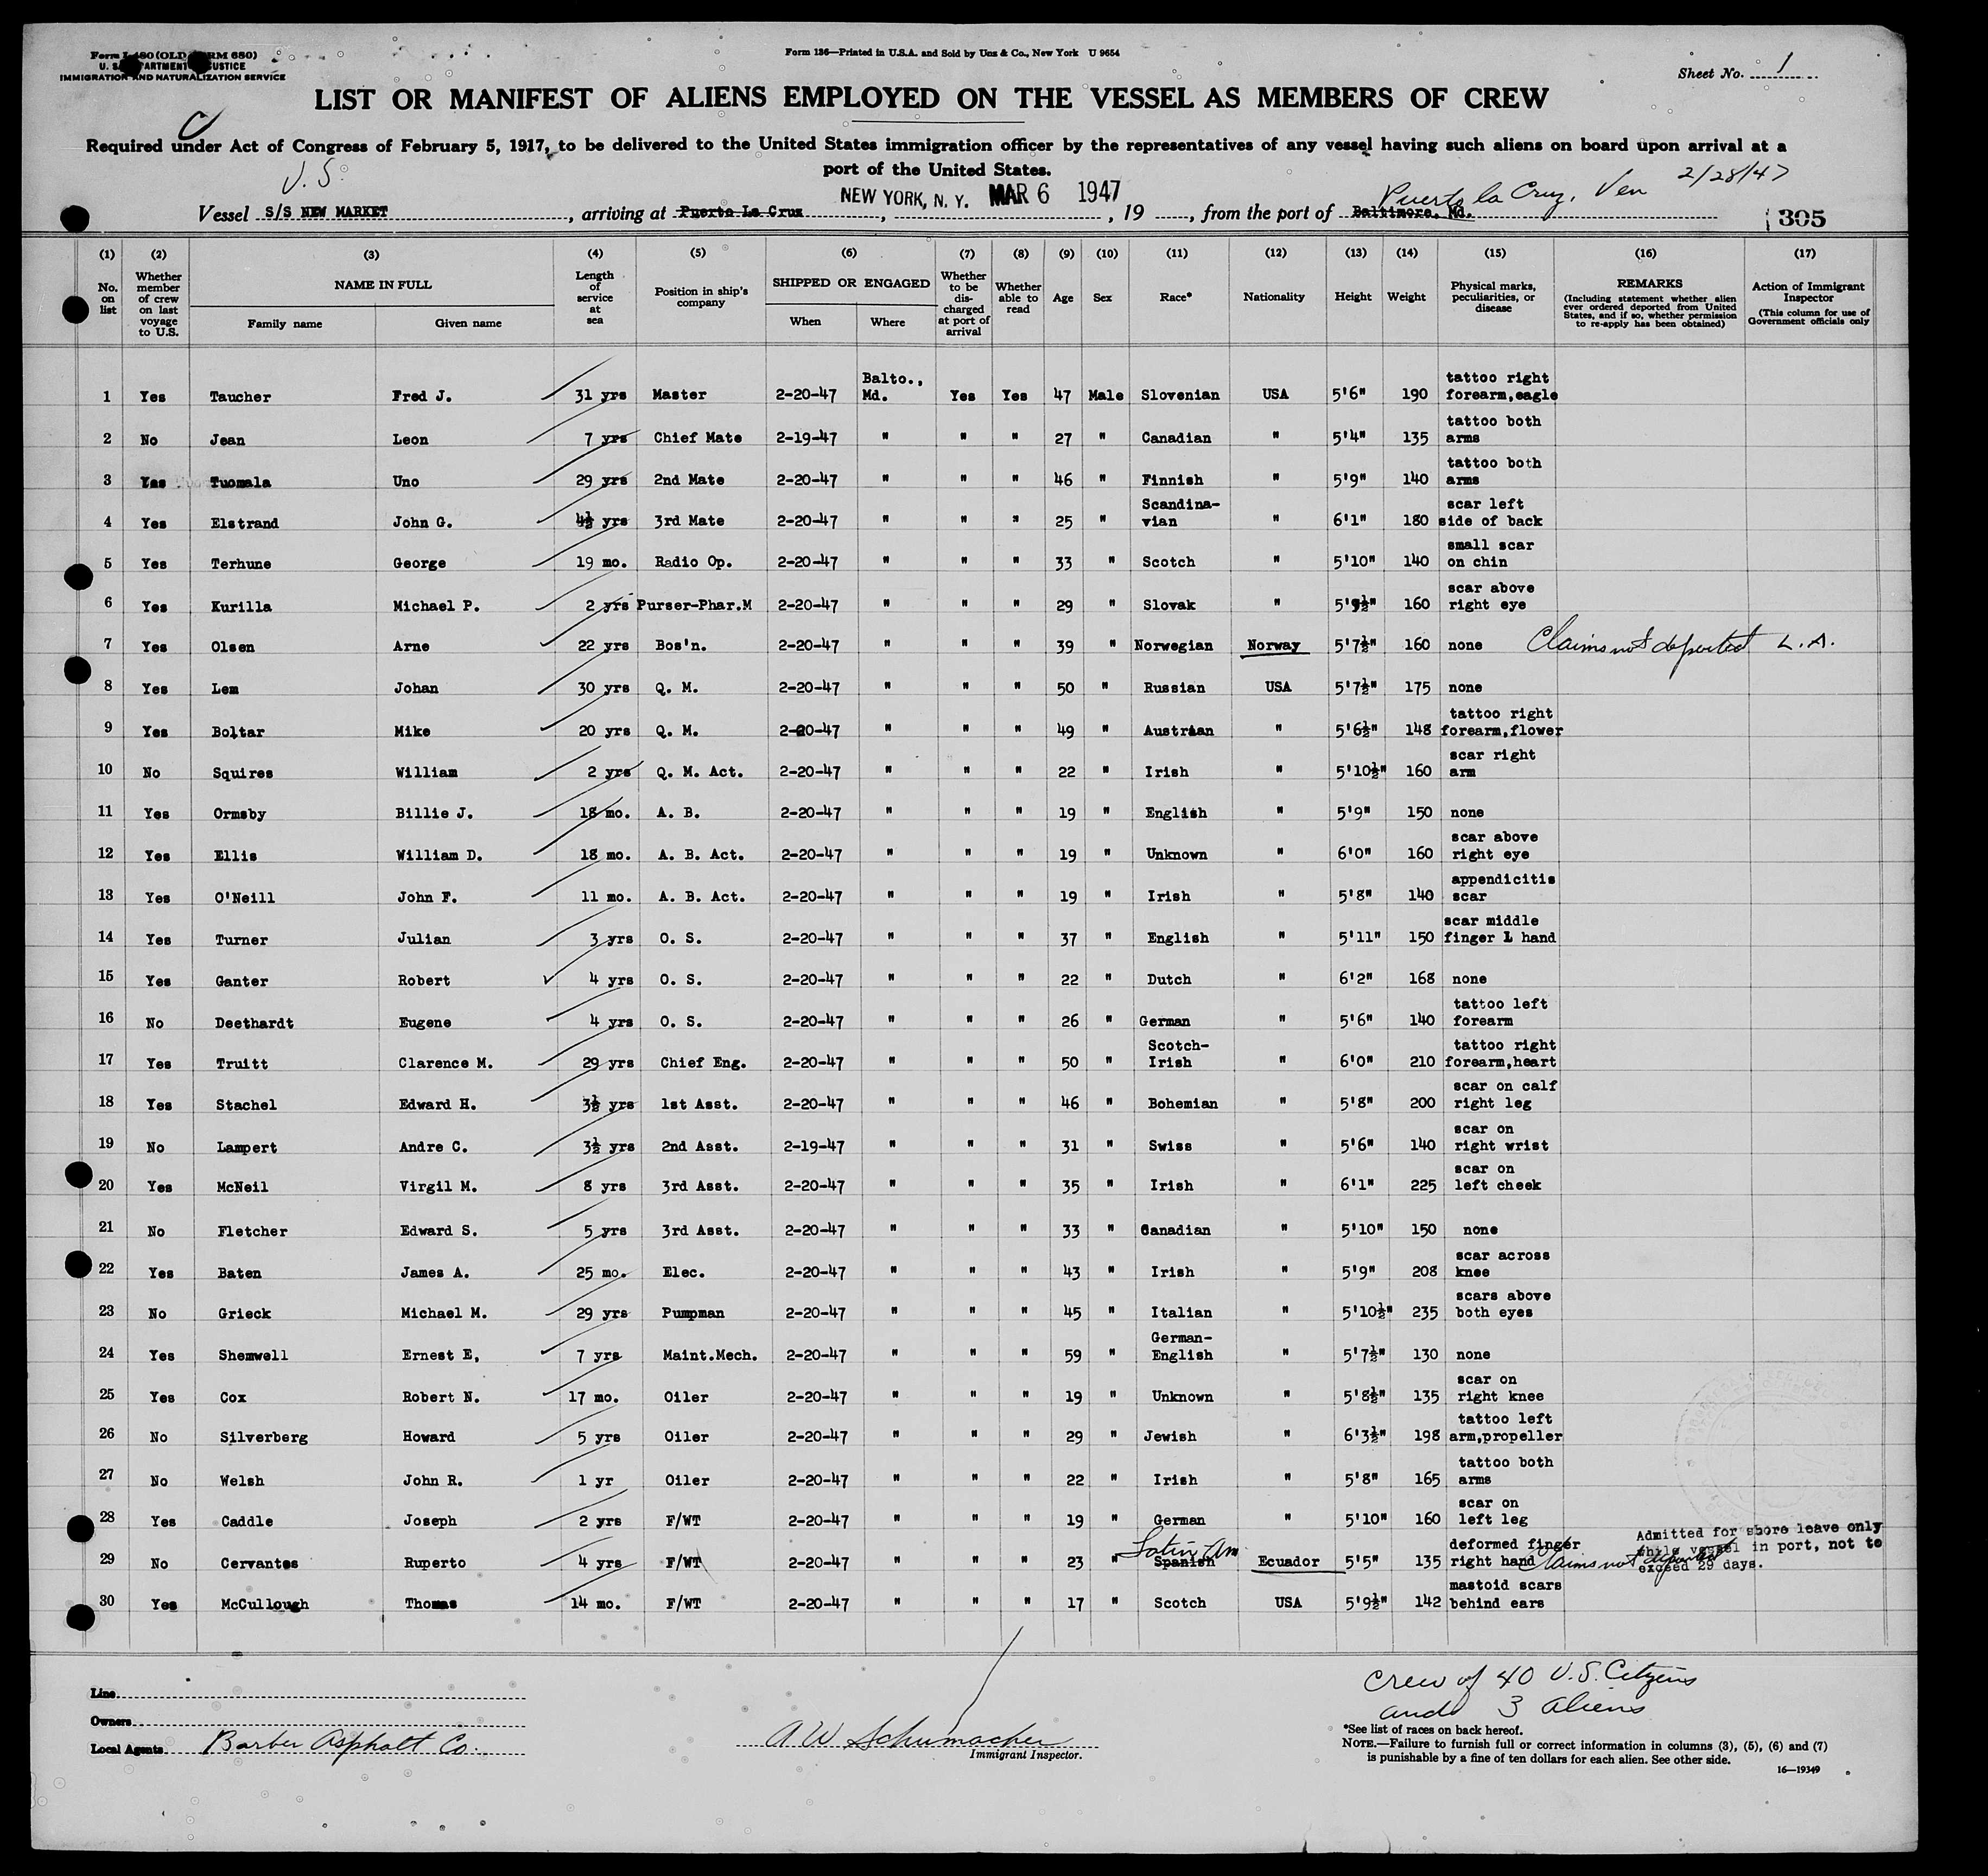 Form I-480 (OLD FORM 680)
U. S. DEPARTMENT OF JUSTICE
IMMIGRATION AND NATURALIZATION SERVICE
Form 136—Printed in U.S.A. and Sold by Unz & Co., New York U 9654
Sheet No. 1
LIST OR MANIFEST OF ALIENS EMPLOYED ON THE VESSEL AS MEMBERS OF CREW
Required under Act of Congress of February 5, 1917, to be delivered to the United States immigration officer by the representatives of any vessel having such aliens on board upon arrival at a
port of the United States.
U.S.
NEW YORK, N. Y. MAR 6 1947
Puerto la Cruz, Ven 2/28/47
Vessel S/S NEW MARKET, arriving at Puerto La Cruz, , 19 , from the port of Baltimore, Md.
305
(1) (2) (3) (4) (5) (6) (7) (8) (9) (10) (11) (12) (13) (14) (15) (16) (17)
No. on list
Whether member of crew on last voyage to U.S.
NAME IN FULL
Family name
Given name
Length of service at sea
Position in ship's company
SHIPPED OR ENGAGED
When
Where
Whether to be discharged at port of arrival
Whether able to read
Age
Sex
Race*
Nationality
Height
Weight
Physical marks, peculiarities, or disease
REMARKS
(Including statement whether alien ever ordered deported from United States, and if so, whether permission to re-apply has been obtained)
Action of Immigrant Inspector
(This column for use of Government officials only
1 Yes Taucher Fred J. 31 yrs Master 2-20-47 Balto., Md. Yes Yes 47 Male Slovenian USA 5'6" 190 tattoo right forearm,eagle
2 No Jean Leon 7 yrs Chief Mate 2-19-47 " " " 27 " Canadian " 5'4" 135 tattoo both arms
3 Yes Tuomala Uno 29 yrs 2nd Mate 2-20-47 " " " 46 " Finnish " 5'9" 140 tattoo both arms
4 Yes Elstrand John G. 4½ yrs 3rd Mate 2-20-47 " " " 25 " Scandina-vian " 6'1" 180 scar left side of back
5 Yes Terhune George 19 mo. Radio Op. 2-20-47 " " " 33 " Scotch " 5'10" 140 small scar on chin
6 Yes Kurilla Michael P. 2 yrs Purser-Phar.M 2-20-47 " " " 29 " Slovak " 5'9½" 160 scar above right eye
7 Yes Olsen Arne 22 yrs Bos'n. 2-20-47 " " " 39 " Norwegian Norway 5'7½" 160 none Claims not deported L.A.
8 Yes Lem Johan 30 yrs Q. M. 2-20-47 " " " 50 " Russian USA 5'7½" 175 none
9 Yes Boltar Mike 20 yrs Q. M. 2-20-47 " " " 49 " Austrian " 5'6½" 148 tattoo right forearm,flower
10 No Squires William 2 yrs Q. M. Act. 2-20-47 " " " 22 " Irish " 5'10½" 160 scar right arm
11 Yes Ormsby Billie J. 18 mo. A. B. 2-20-47 " " " 19 " English " 5'9" 150 none
12 Yes Ellis William D. 18 mo. A. B. Act. 2-20-47 " " " 19 " Unknown " 6'0" 160 scar above right eye
13 Yes O'Neill John F. 11 mo. A. B. Act. 2-20-47 " " " 19 " Irish " 5'8" 140 appendicitis scar
14 Yes Turner Julian 3 yrs O. S. 2-20-47 " " " 37 " English " 5'11" 150 scar middle finger L hand
15 Yes Ganter Robert 4 yrs O. S. 2-20-47 " " " 22 " Dutch " 6'2" 168 none
16 No Deethardt Eugene 4 yrs O. S. 2-20-47 " " " 26 " German " 5'6" 140 tattoo left forearm
17 Yes Truitt Clarence M. 29 yrs Chief Eng. 2-20-47 " " " 50 " Scotch-Irish " 6'0" 210 tattoo right forearm,heart
18 Yes Stachel Edward H. 3½ yrs 1st Asst. 2-20-47 " " " 46 " Bohemian " 5'8" 200 scar on calf right leg
19 No Lampert Andre C. 3½ yrs 2nd Asst. 2-19-47 " " " 31 " Swiss " 5'6" 140 scar on right wrist
20 Yes McNeil Virgil M. 8 yrs 3rd Asst. 2-20-47 " " " 35 " Irish " 6'1" 225 scar on left cheek
21 No Fletcher Edward S. 5 yrs 3rd Asst. 2-20-47 " " " 33 " Canadian " 5'10" 150 none
22 Yes Baten James A. 25 mo. Elec. 2-20-47 " " " 43 " Irish " 5'9" 208 scar across knee
23 No Grieck Michael M. 29 yrs Pumpman 2-20-47 " " " 45 " Italian " 5'10½" 235 scars above both eyes
24 Yes Shemwell Ernest E, 7 yrs Maint.Mech. 2-20-47 " " " 59 " German-English " 5'7½" 130 none
25 Yes Cox Robert N. 17 mo. Oiler 2-20-47 " " " 19 " Unknown " 5'8½" 135 scar on right knee
26 No Silverberg Howard 5 yrs Oiler 2-20-47 " " " 29 " Jewish " 6'3½" 198 tattoo left arm,propeller
27 No Welsh John R. 1 yr Oiler 2-20-47 " " " 22 " Irish " 5'8" 165 tattoo both arms
28 Yes Caddle Joseph 2 yrs F/WT 2-20-47 " " " 19 " German " 5'10" 160 scar on left leg
29 No Cervantes Ruperto 4 yrs F/WT 2-20-47 " " " 23 " Spanish Latin Am Ecuador 5'5" 135 deformed finger right hand Claims not deported Admitted for shore leave only while vessel in port, not to exceed 29 days.
30 Yes McCullough Thomas 14 mo. F/WT 2-20-47 " " " 17 " Scotch USA 5'9½" 142 mastoid scars behind ears
Line
Owners
Local Agents Barber Asphalt Co.
A W Schumacher
Immigrant Inspector.
Crew of 40 U.S. Citizens
and 3 aliens
*See list of races on back hereof.
NOTE.—Failure to furnish full or correct information in columns (3), (5), (6) and (7)
is punishable by a fine of ten dollars for each alien. See other side.
16—19349